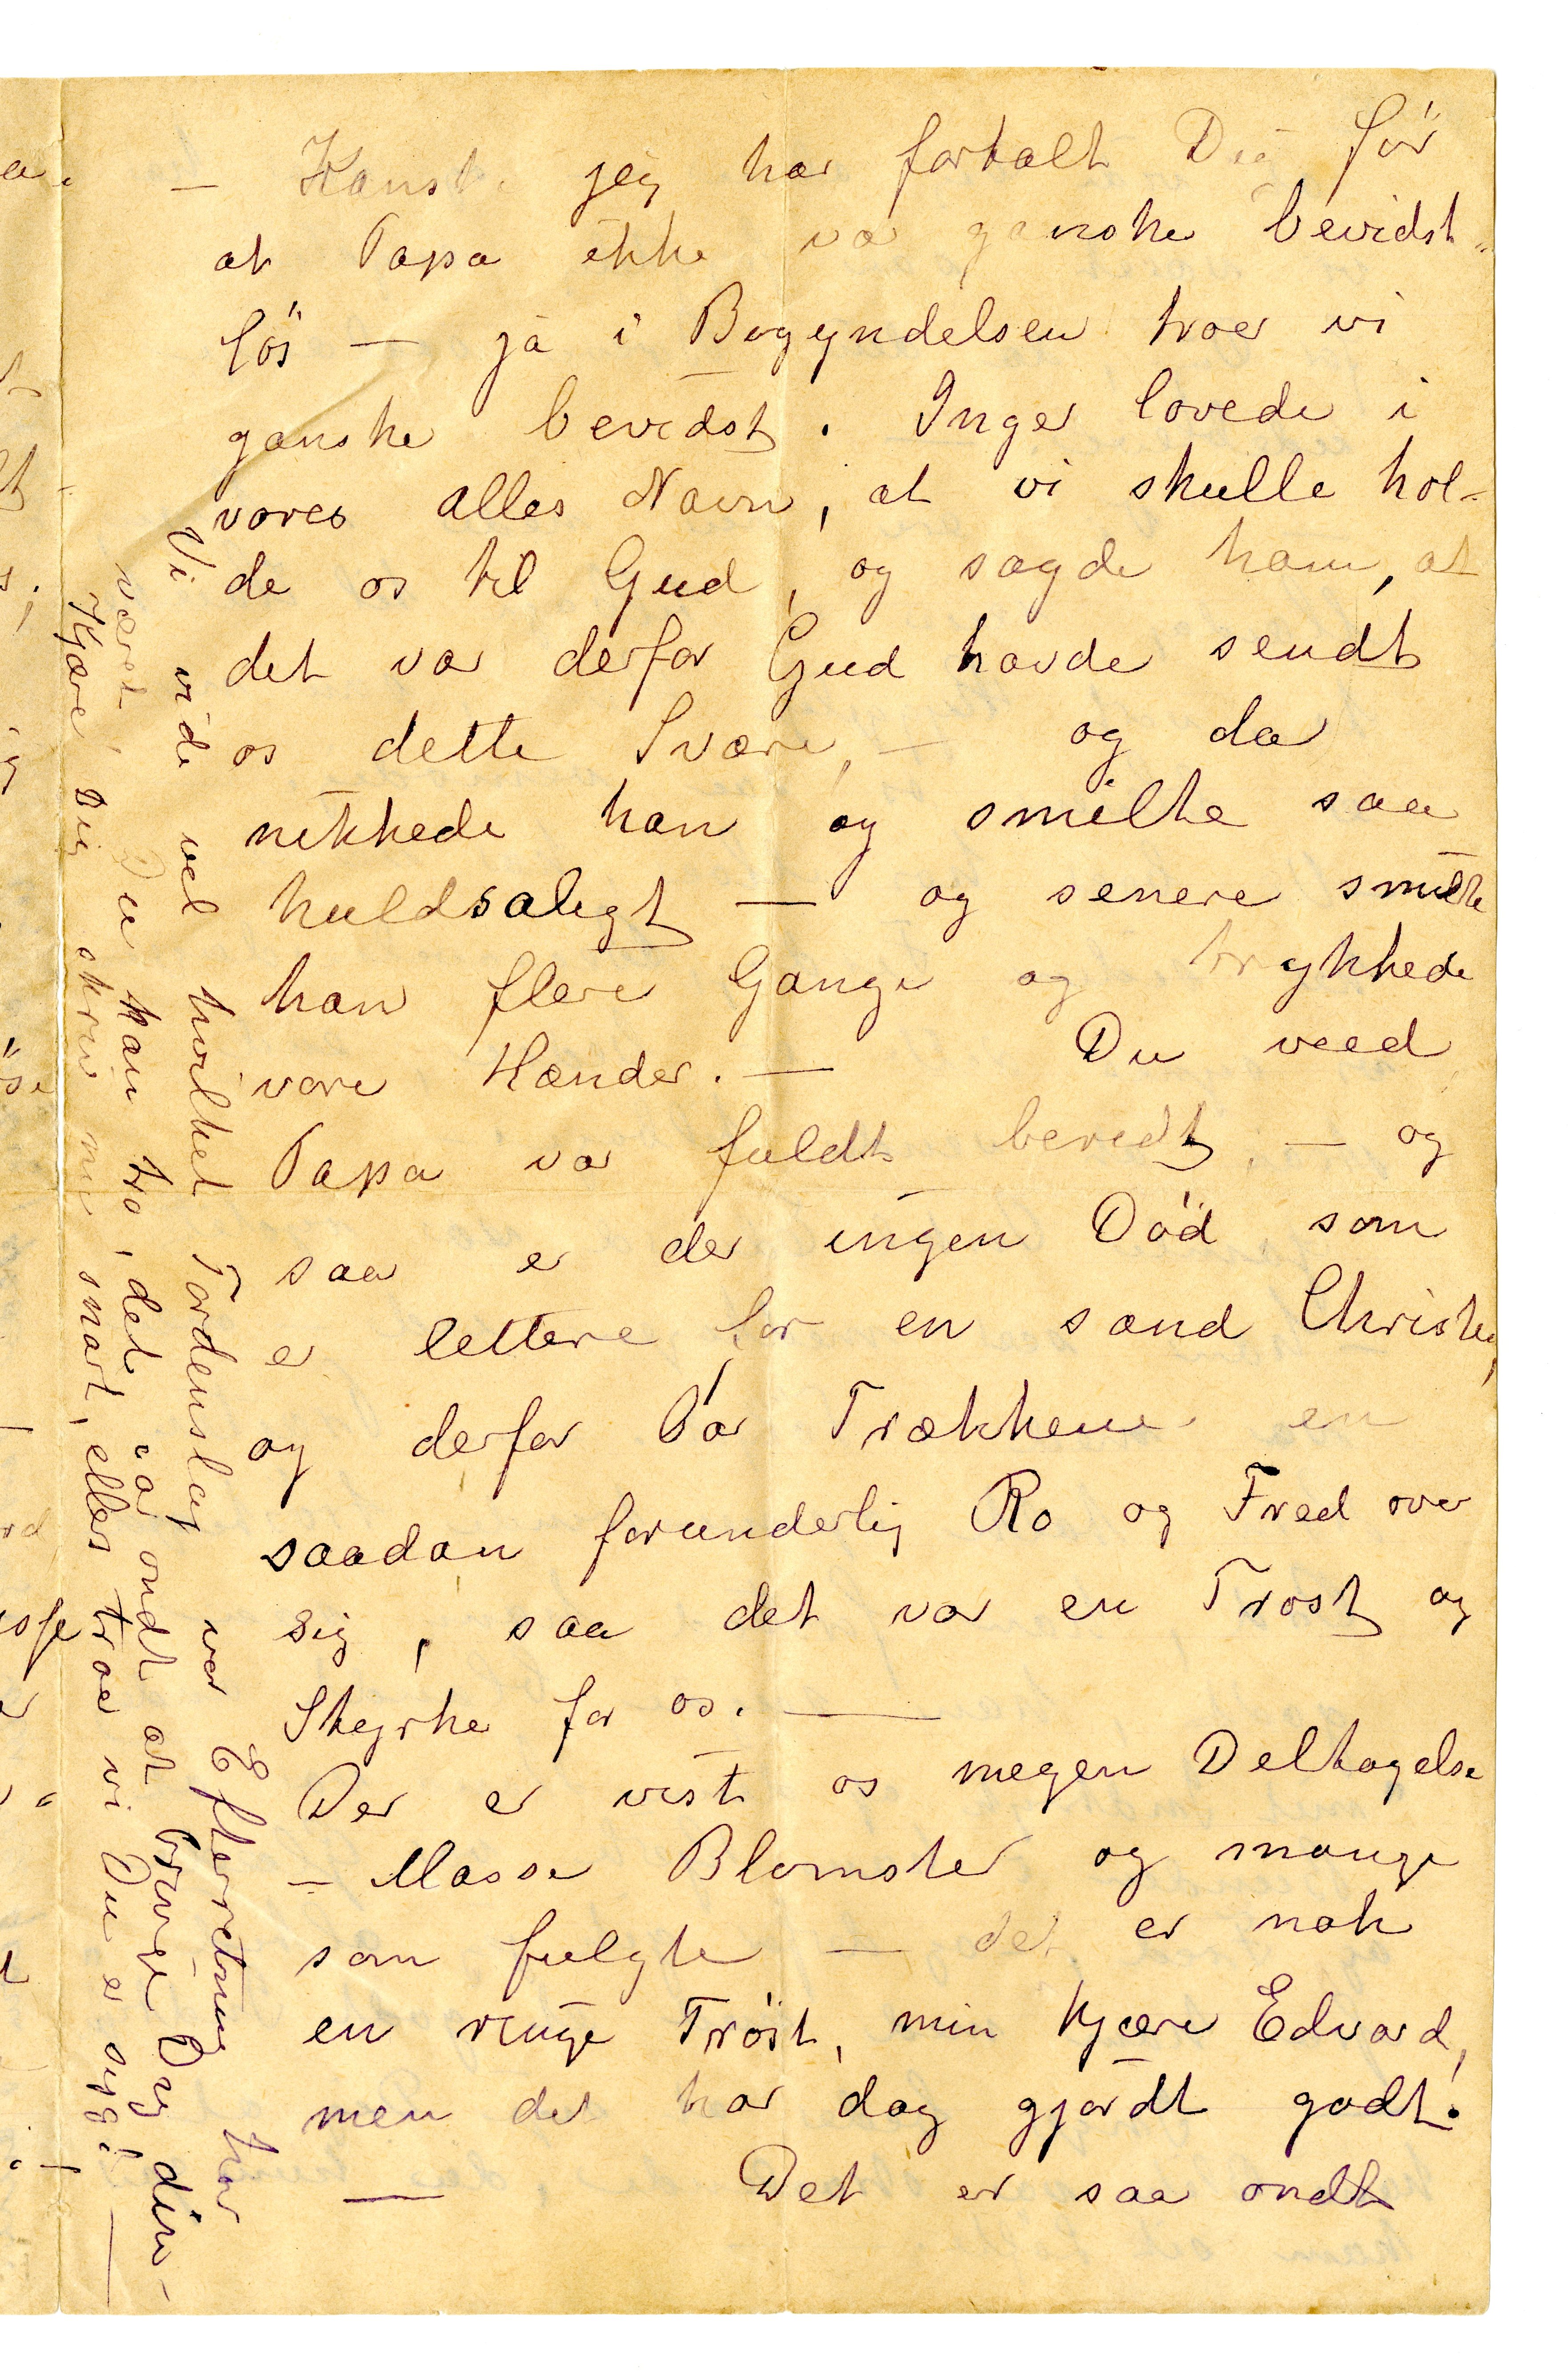 – Kanske jeg har fortalt Dig før
at Papa ikke var ganske bevidst-
løs – ja i Begyndelsen troer vi
ganske bevidst. Inger lovede i
vores alles Navn, at vi skulle hol-
de os til Gud, og sagde ham, at
det var derfor Gud havde sendt
os dette Svære, – og da
nikkede han og smilte saa
huldsaligt – og senere smilte
han flere Gange og trykkede
vore Hænder. – Du veed
Papa var fuldt beredt, – og
saa er der ingen Død, som
er lettere for en sand Christen,
og derfor var Trækkene en
saadan forunderlig Ro og Fred over
sig, saa det var en Trøst og
Styrke for os. –
Der er vist os megen Deltagelse
– Masse Blomster og mange
som fulgte – det er nok
en ringe Trøst, min kjære Edvard,
men det har dog gjørdt godt.
– Det er saa ondt
Vi vide vel hvilket Tordenslag vor Efterretning har
været, Du kan tro, det var ondt at bringe Dig den –
Kjære Dig skriv nu snart, ellers troe vi Du er syg! –